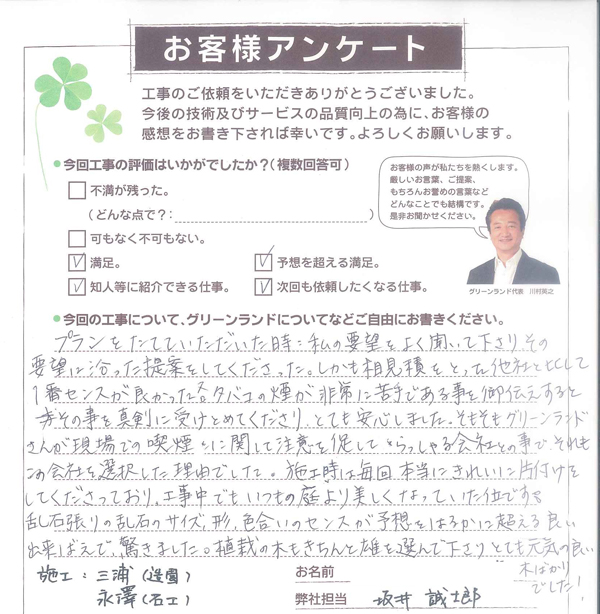 お客様アンケート
工事のご依頼をいただきありがとうございました。
今後の技術及びサービスの品質向上の為に、お客様の
感想をお書き下されば幸いです。よろしくお願いします。
●今回工事の評価はいかがでしたか？（複数回答可）
不満が残った。
（どんな点で？：　　　　　　　　　　）
可もなく不可もない。
満足。
予想を超える満足。
知人等に紹介できる仕事。
次回も依頼したくなる仕事。
お客様の声が私たちを熱くします。
厳しいお言葉、ご提案、
もちろんお誉めの言葉など
どんなことでも結構です。
是非お聞かせください。
グリーンランド代表　川村英之
●今回の工事について、グリーンランドについてなどご自由にお書きください。
プランをたてていただいた時：私の要望をよく聞いて下さり、その
要望に沿った提案をしてくださった。しかも相見積をとった他社と比して
1番センスが良かった。タバコの煙が非常に苦手である事を御伝えすると
その事を真剣に受けとめてくださり、とても安心しました。そもそもグリーンランド
さんが現場での喫煙に関して注意を促していらっしゃる会社との事で、それも
この会社を選択した理由でした。施工時は毎回本当にきれいに片付けを
してくださっており、工事中でもいつもの庭より美しくなっていた位です。
乱石張りの乱石のサイズ、形、色合いのセンスが予想をはるかに超える良い
出来ばえで、驚きました。植栽の木もきちんと雄を選んで下さり、とても元気の良い
木ばかり
でした！
施工：三浦（造園）
永澤（石工）
お名前
弊社担当　坂井 誠士郎